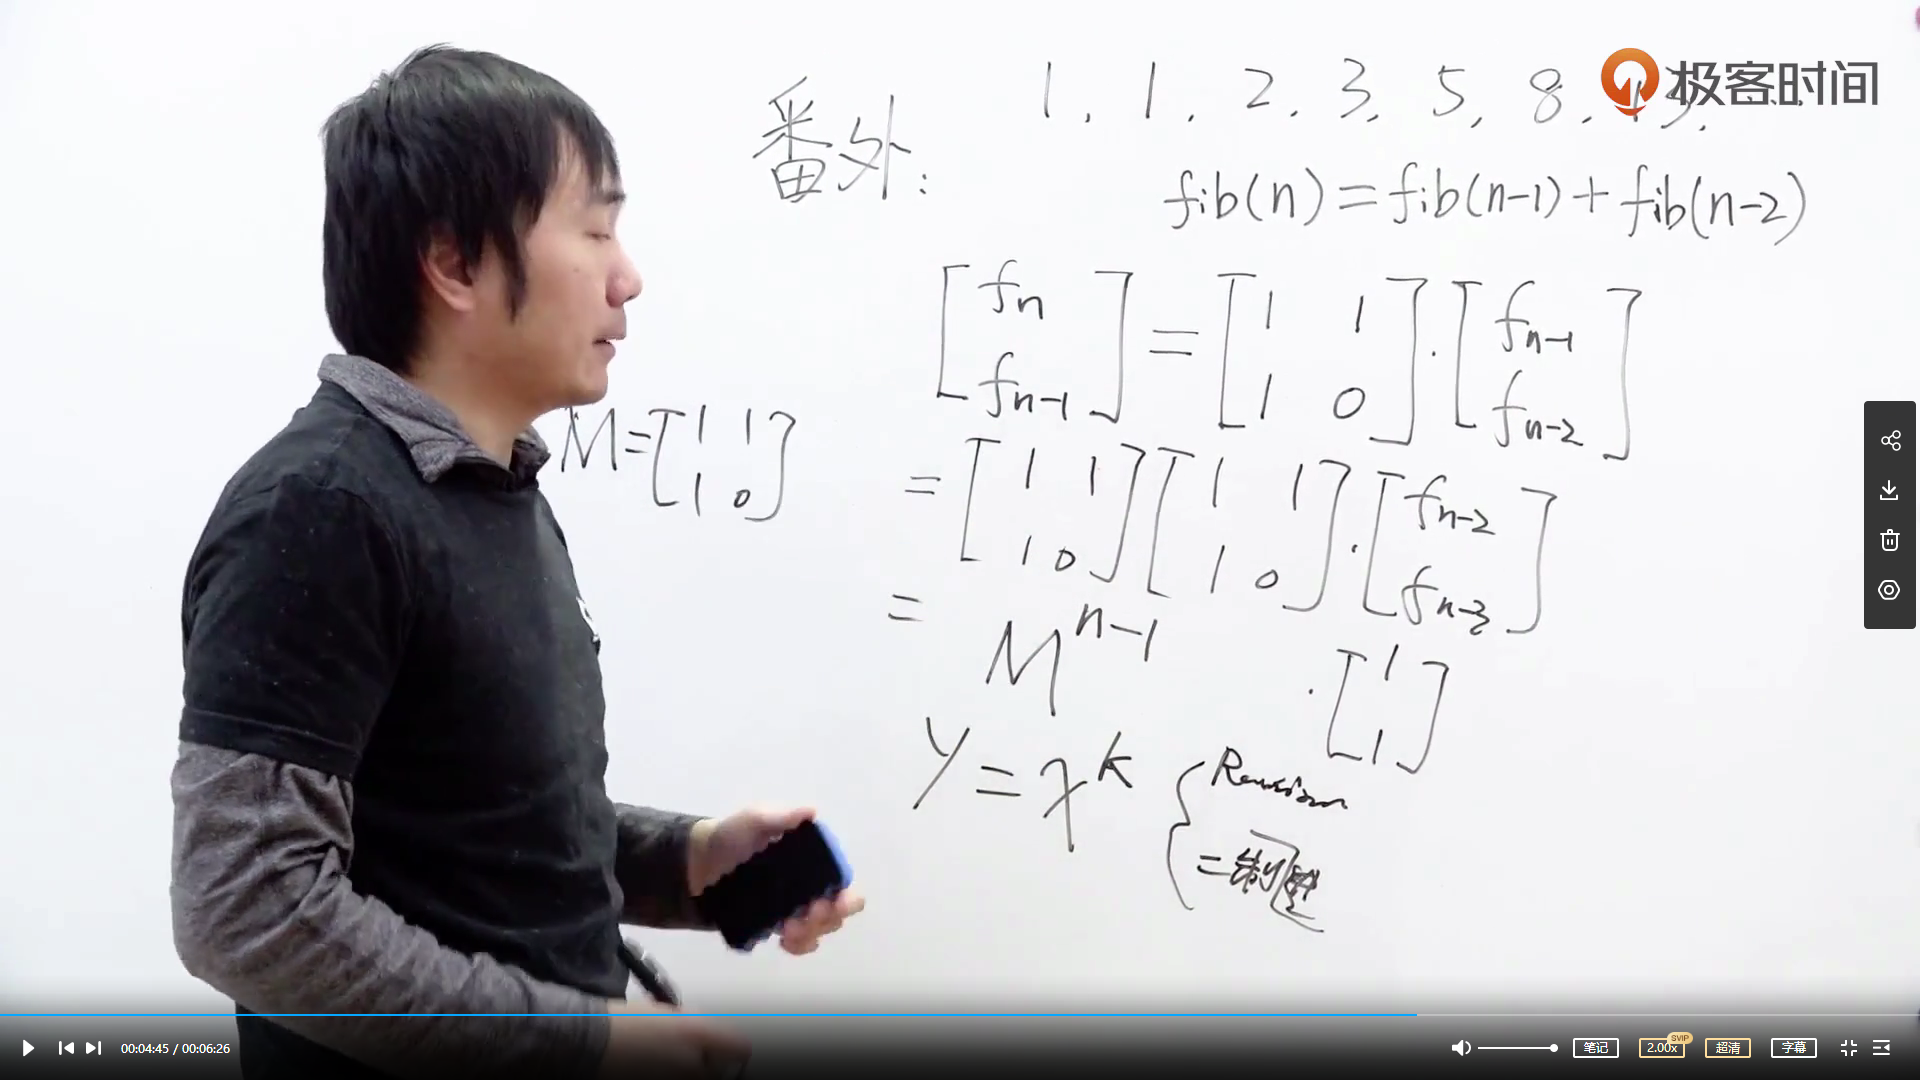 极客时间
番外:
1, 1, 2, 3, 5, 8, 13,
fib(n)=fib(n-1)+fib(n-2)
[fn fn-1] = [1 1 1 0] · [fn-1 fn-2]
M=[1 1 1 0]
= [1 1 1 0] [1 1 1 0] · [fn-2 fn-3]
= M^n-1 · [1 1]
y = x^k
二制
00:04:45 / 00:06:26
笔记
SVIP
2.00x
超清
字幕